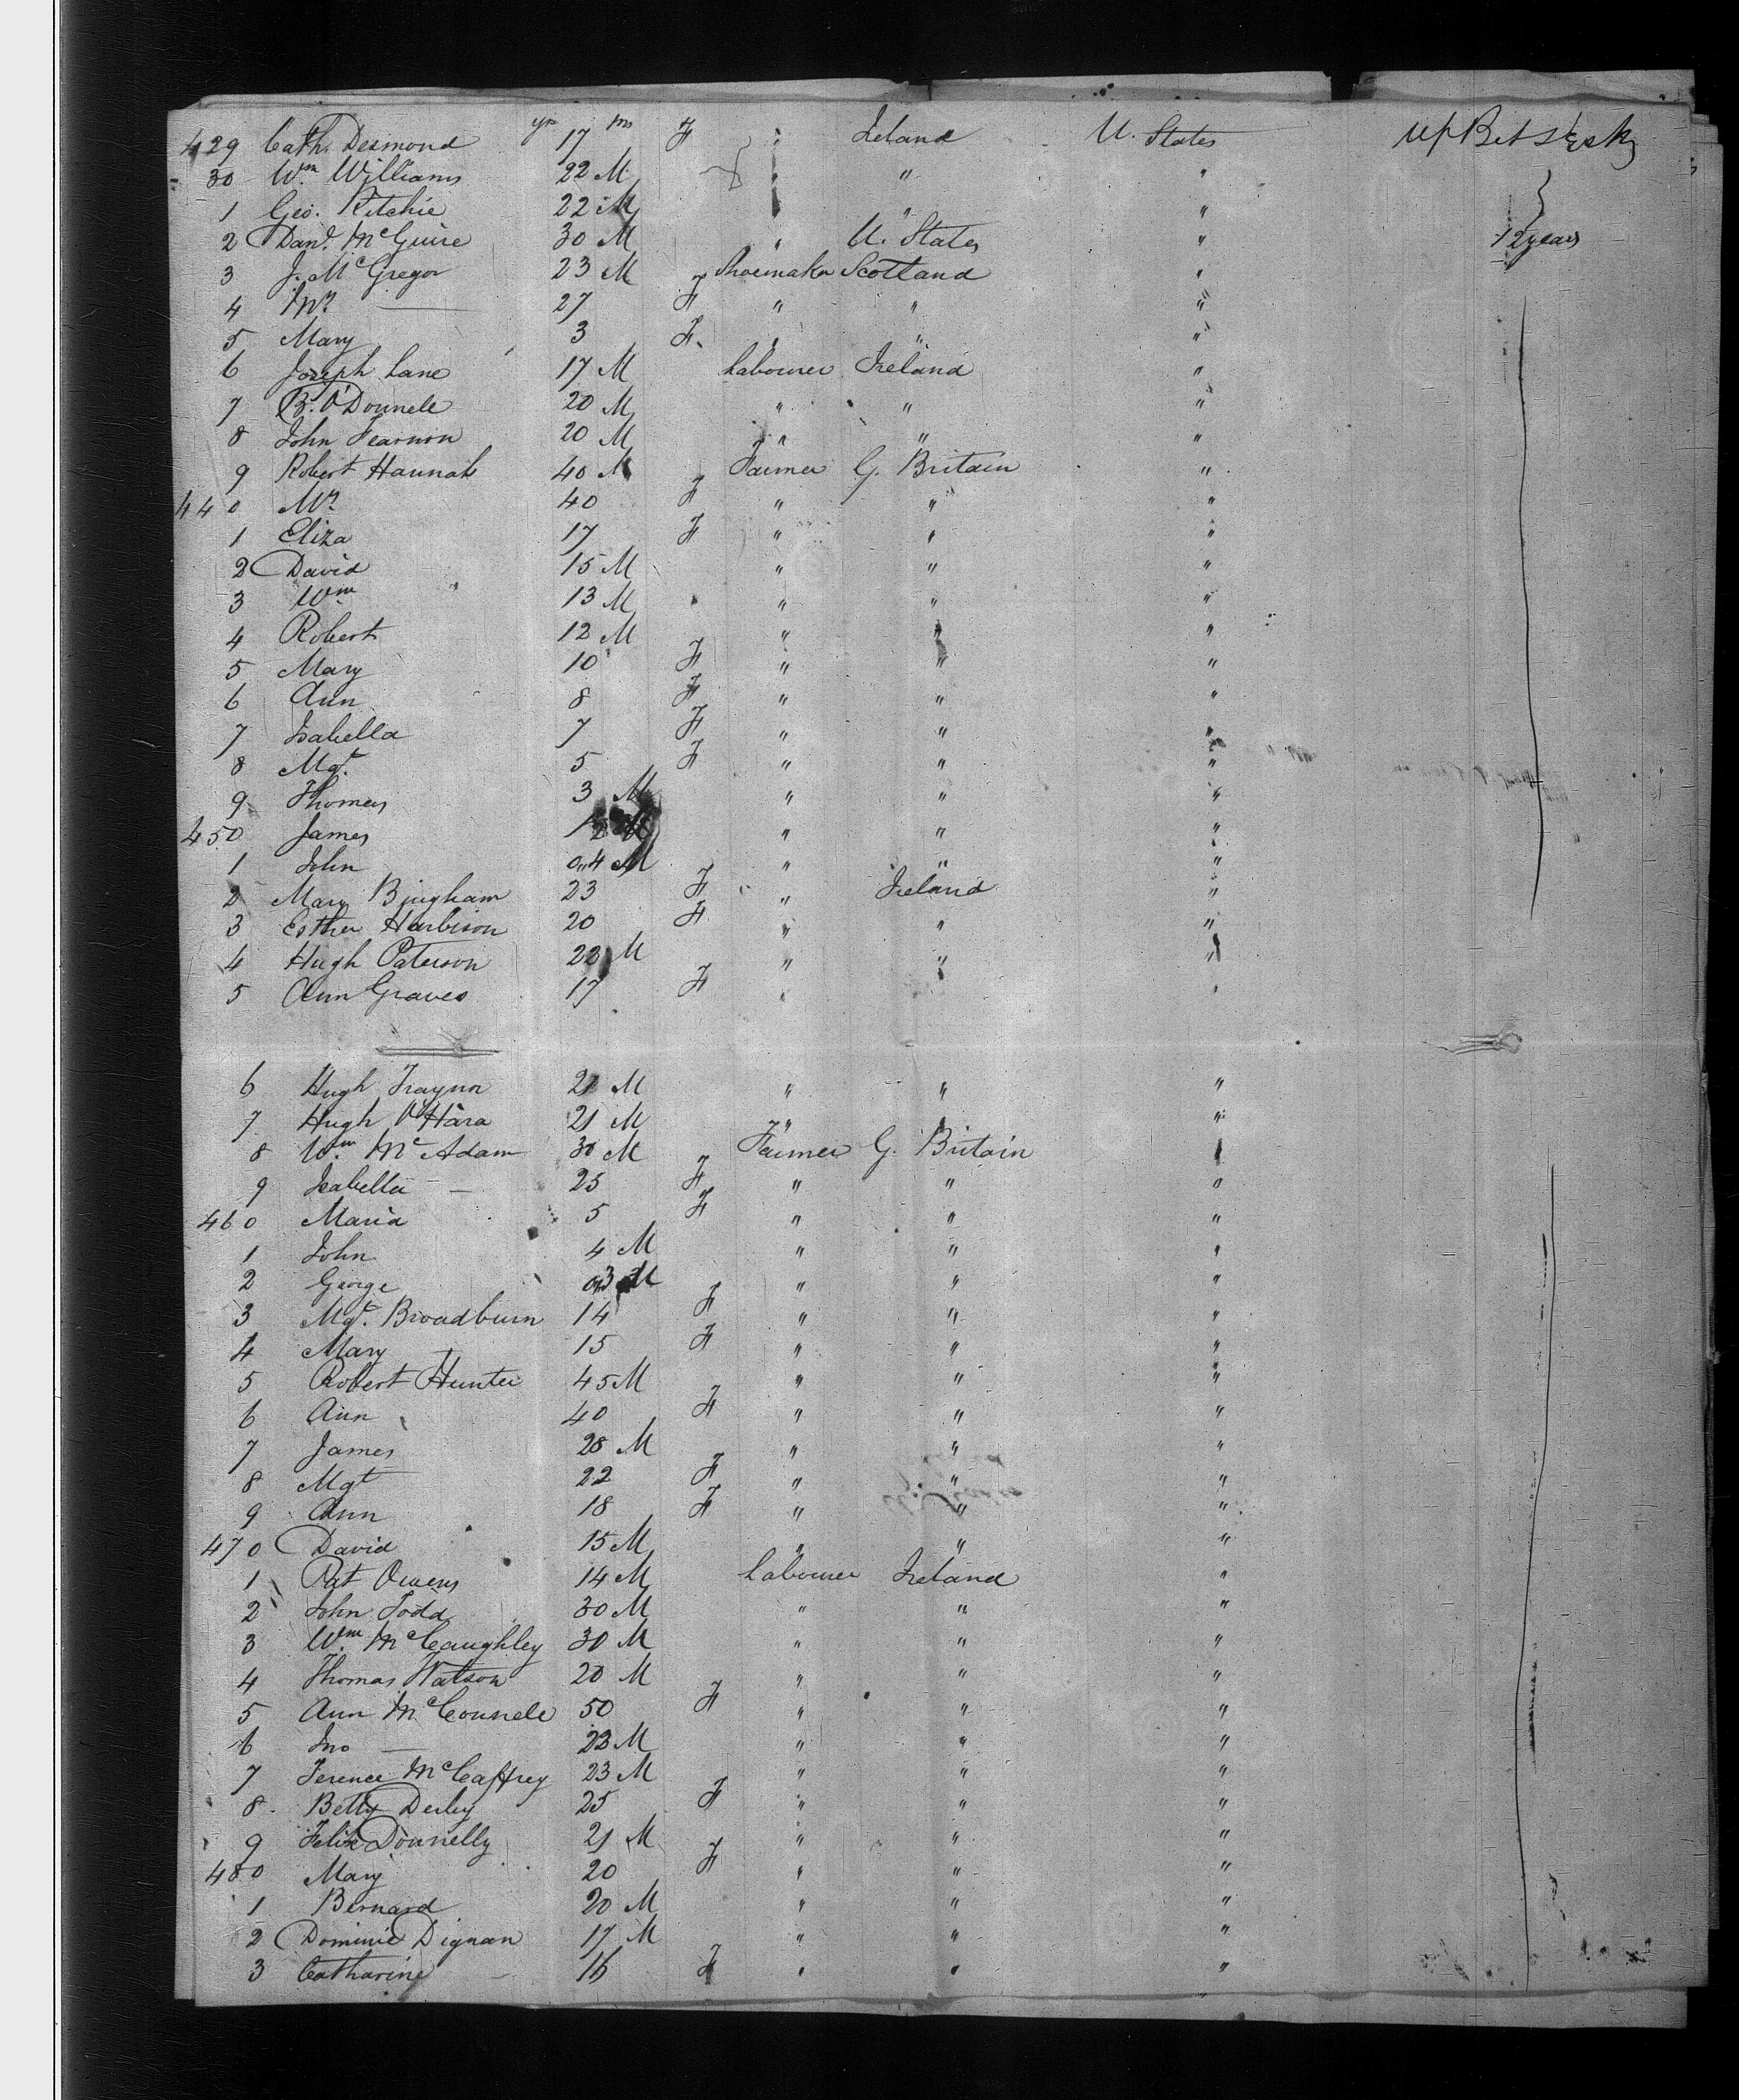 yrs ms
429 Cath. Desmond 17 F " Ireland U. States
30 Wm Williams 22 M " " "
1 Geo. Ritchie 22 M " "
2 Danl. McGuire 30 M " U. States " 12 years
3 J. McGregor 23 M Shoemaker Scotland "
4 Mrs — 27 F " " "
5 Mary 3 F " " "
6 Joseph Lane 17 M Labourer Ireland "
7 B. O'Donnell 20 M " " "
8 John Fearnon 20 M " " "
9 Robert Hannah 40 M Farmer G. Britain "
440 Mrs 40 F " " "
1 Eliza 17 F " " "
2 David 15 M " " "
3 Wm 13 M " " "
4 Robert 12 M " " "
5 Mary 10 F " " "
6 Ann 8 F " " "
7 Isabella 7 F " " "
8 Mgt. 5 F " " "
9 Thomas 3 M " " "
450 James M " " "
1 John 0"4 M " " "
2 Mary Bingham 23 F " Ireland "
3 Esther Harbison 20 F " " "
4 Hugh Paterson 22 M " " "
5 Ann Graves 17 F " "
6 Hugh Traynor 21 M " " "
7 Hugh O'Hara 21 M " " "
8 Wm. McAdam 30 M Farmer G. Britain "
9 Isabella — 25 F " " "
460 Maria 5 F " " "
1 John 4 M " " "
2 George 0"3 M " " "
3 Mgt. Broadburn 14 F " " "
4 Mary — 15 F " " "
5 Robert Hunter 45 M " " "
6 Ann 40 F " " "
7 James 28 M " " "
8 Mgt 22 F " " "
9 Ann 18 F " " "
470 David 15 M " " "
1 Pat Owens 14 M Labourer Ireland "
2 John Todd 30 M " " "
3 Wm. McCaughley 30 M " " "
4 Thomas Watson 20 M " " "
5 Ann McConnele 50 F " " "
6 Jno — 22 M " " "
7 Terence McCaffrey 23 M " " "
8 Betty Derby 25 F " " "
9 Felix Donnelly 21 M " " "
480 Mary 20 F " " "
1 Bernard 20 M " " "
2 Dominic Dignan 17 M " " "
3 Catharine — 16 F " " "